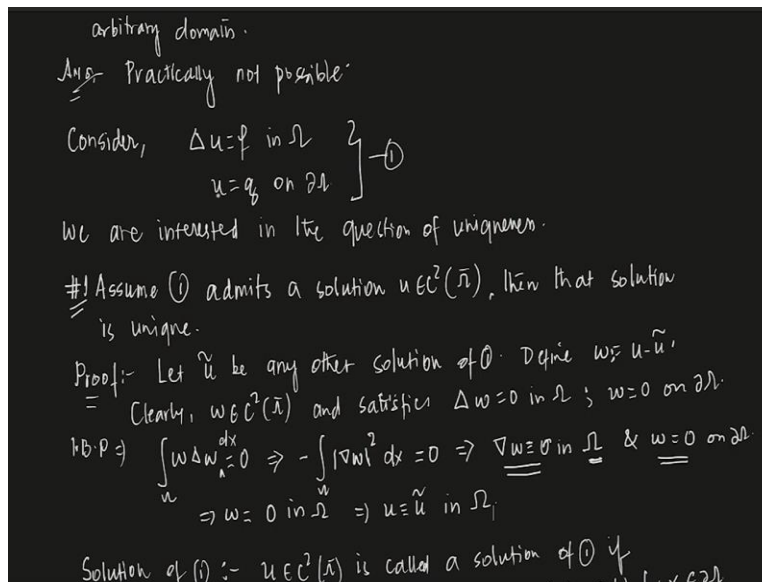 arbitrary domain.
Ans Practically not possible.
Consider, Δu=f in Ω
u=g on ∂Ω } -①
we are interested in the question of uniqueness.
#! Assume ① admits a solution u∈C²(Ω̄), then that solution
is unique.
Proof:- Let ũ be any other solution of ①. Define w= u-ũ.
Clearly, w∈C²(Ω̄) and satisfies Δw=0 in Ω ; w=0 on ∂Ω.
I.B.P ⇒ ∫_Ω wΔw dx = 0 ⇒ -∫_Ω |∇w|² dx = 0 ⇒ ∇w≡0 in Ω & w=0 on ∂Ω.
⇒ w= 0 in Ω̄ ⇒ u≡ũ in Ω,
Solution of ① :- u∈C²(Ω̄) is called a solution of ① if